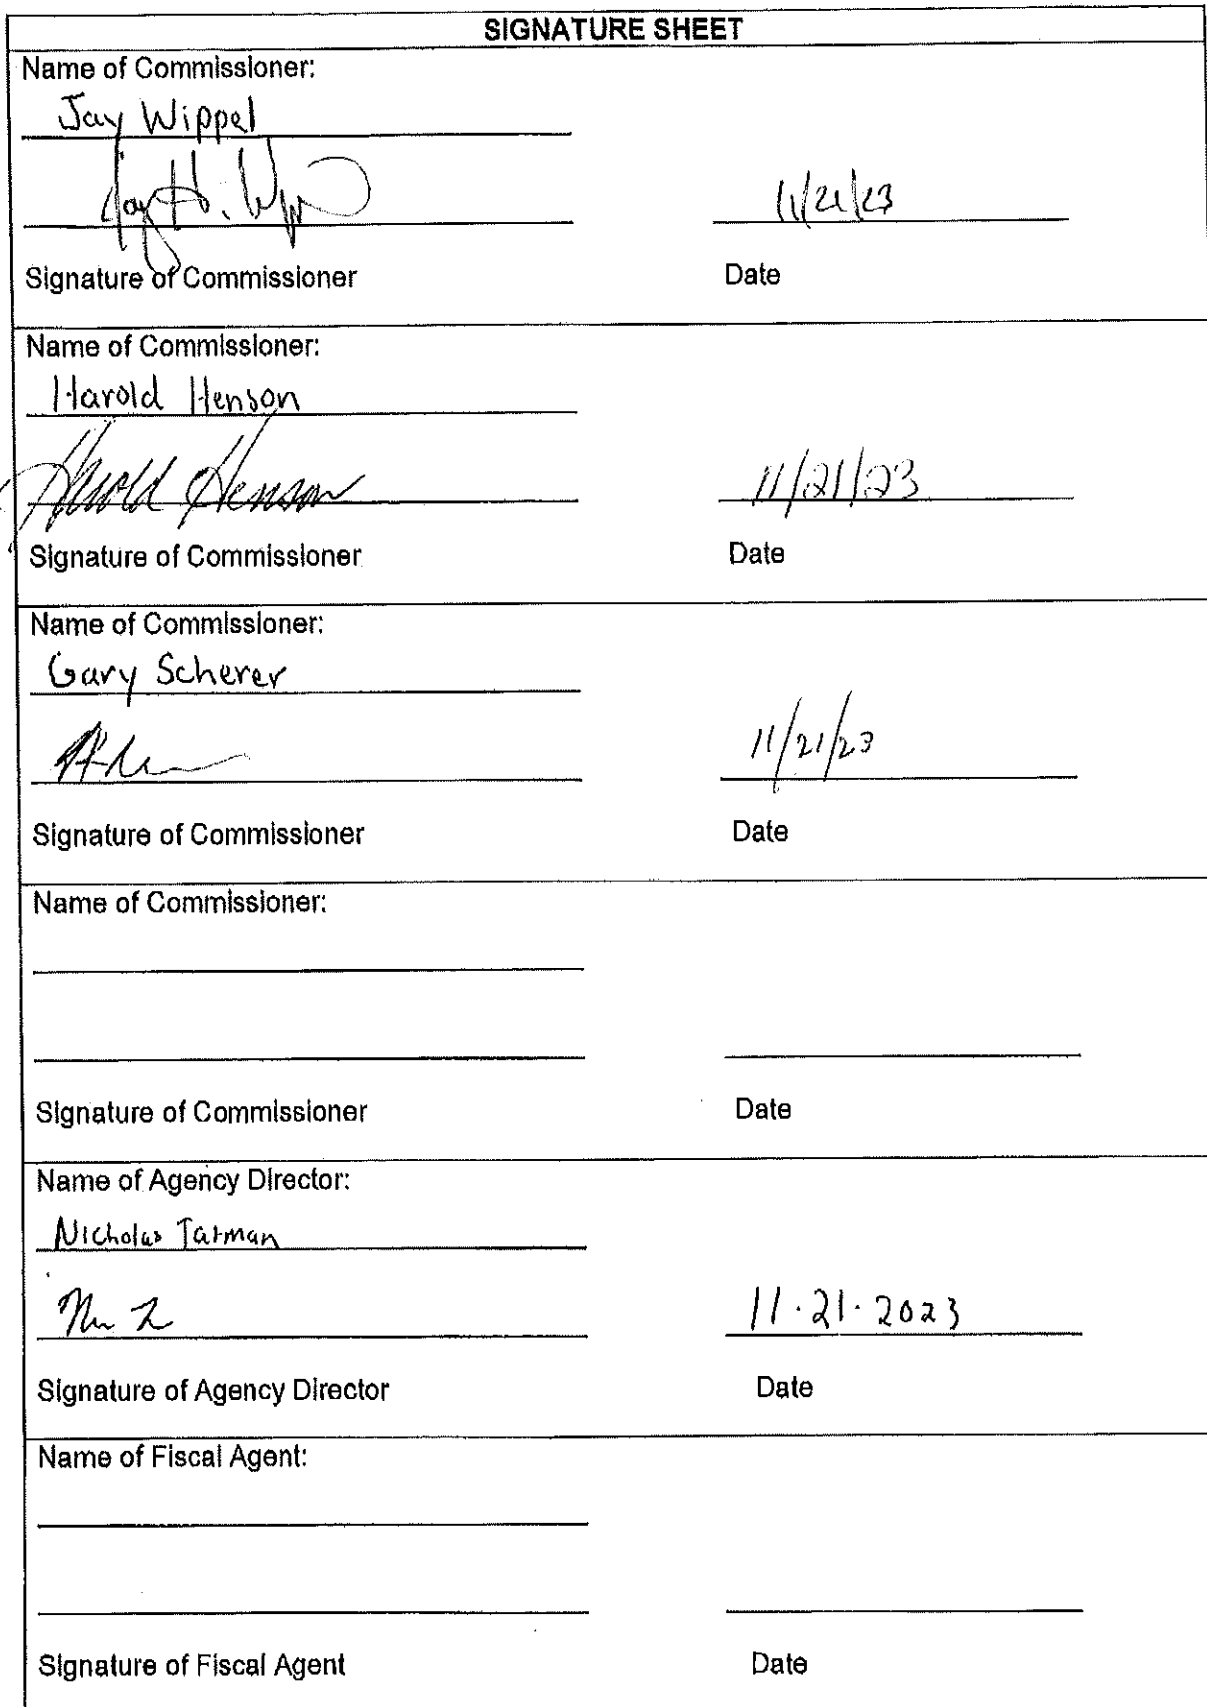 SIGNATURE SHEET
Name of Commissioner:
Jay Wippel
Jay H. Wip 11/21/23
Signature of Commissioner Date
Name of Commissioner:
Harold Henson
Harold Henson 11/21/23
Signature of Commissioner Date
Name of Commissioner:
Gary Scherer
11/21/23
Signature of Commissioner Date
Name of Commissioner:
Signature of Commissioner Date
Name of Agency Director:
Nicholas Tatman
11.21.2023
Signature of Agency Director Date
Name of Fiscal Agent:
Signature of Fiscal Agent Date